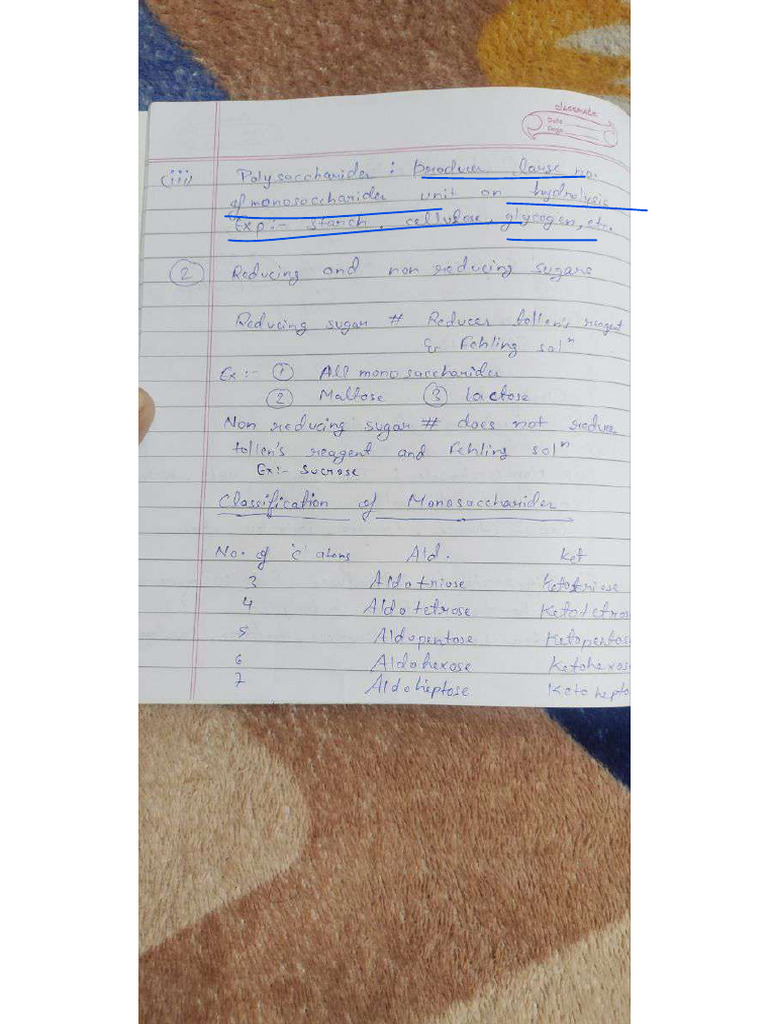 classmate
Date
Page
(iii) Polysaccharides : Produces large no.
of monosaccharides unit on hydrolysis
Exp:- Starch, cellulose, glycogen, etc.
(2) Reducing and non reducing sugars
Reducing sugar # Reduces tollen's reagent
& Fehling solⁿ
Ex:- (1) All monosaccharides
(2) Maltose (3) Lactose
Non reducing sugar # does not reduce
tollen's reagent and Fehling solⁿ
Ex:- Sucrose
Classification of Monosaccharides
No. of 'C' atoms Ald. Ket
3 Aldotriose Ketotriose
4 Aldotetrose Ketotetros
5 Aldopentose Ketopentos
6 Aldohexose Ketohexos
7 Aldoheptose Ketohepto